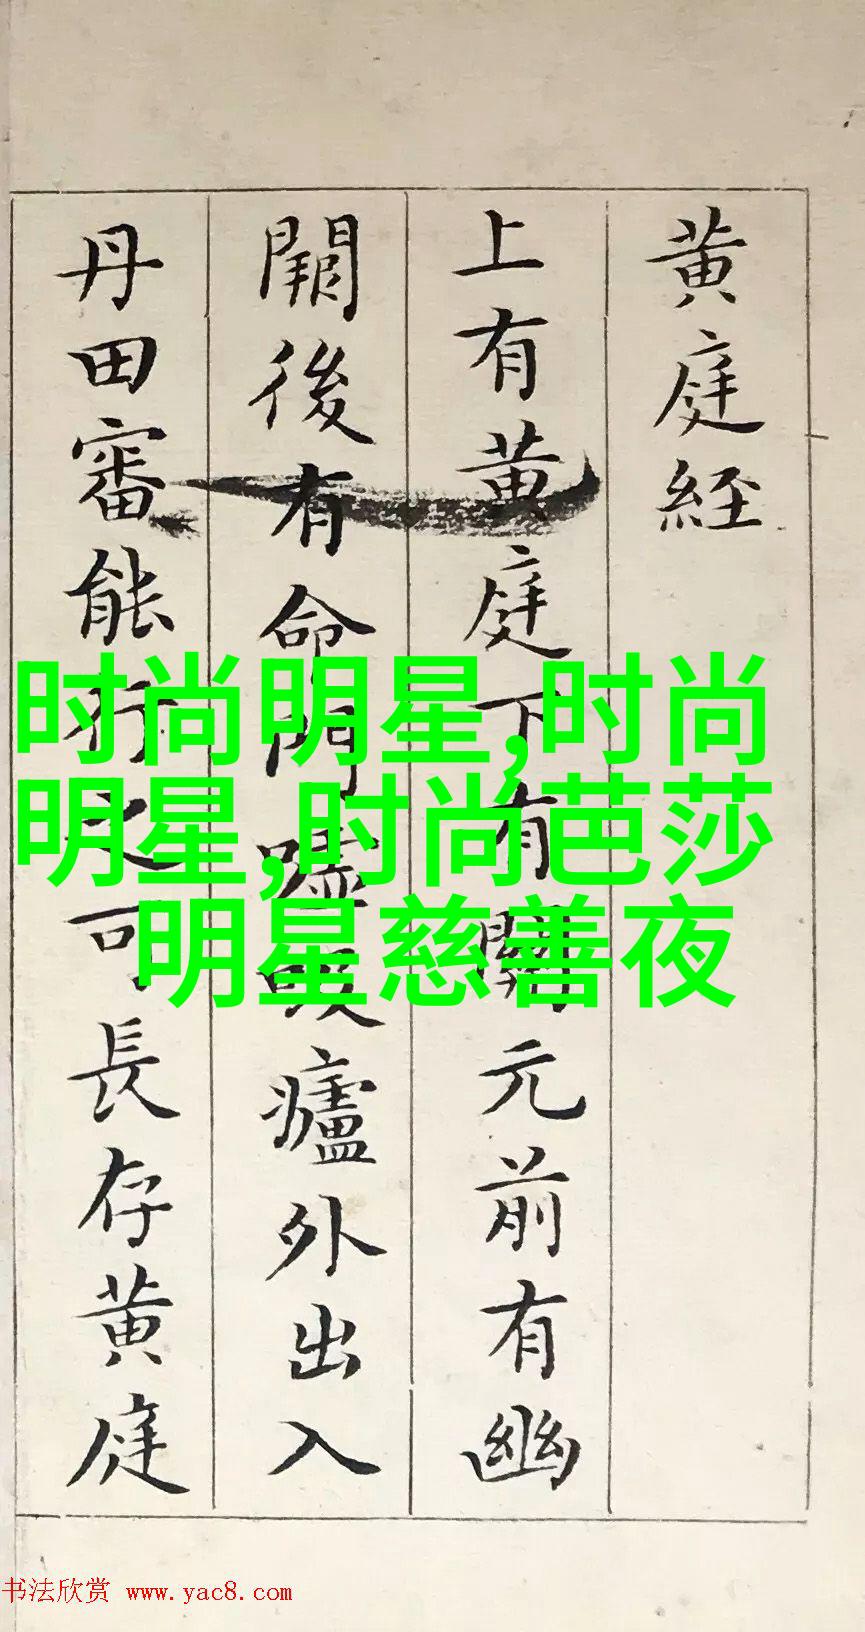 黄庭経
上有黄庭下有關元前有幽
闕後有命門嘘吸廬外出入
丹田審能行之可長存黄庭
时尚明星,时尚
明星,时尚芭莎
明星慈善夜
书法欣赏 www.yac8.com